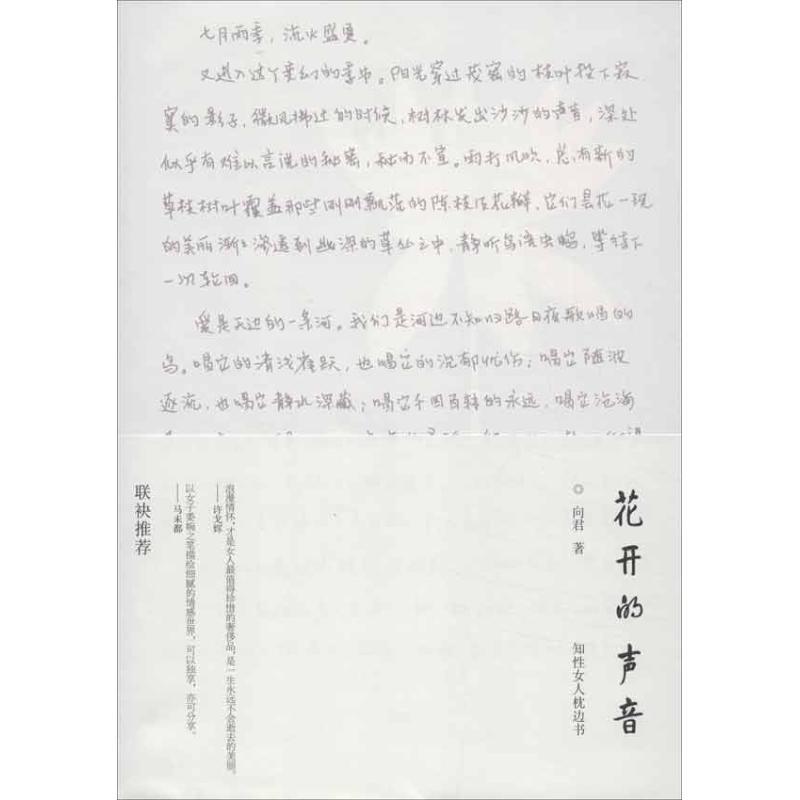 七月雨季，流火盛夏。
又进入这个变幻的季节。阳光穿过茂密的枝叶投下寂
寞的影子，微风拂过的时候，树林发出沙沙的声音，深处
似乎有难以言说的秘密，秘而不宣。雨打风吹，总有新的
草枝树叶覆盖那些刚刚飘落的陈枝及花瓣，它们昙花一现
的美丽渐渐渗透到幽深的草丛之中，静听鸟语虫鸣，等待下
一次轮回。
爱是天边的一条河。我们是河边不知归路日夜歌唱的
鸟。唱它的清浅雀跃，也唱它的沉郁忧伤；唱它随波
逐流，也唱它静水深藏；唱它千回百转的永远，唱它沧海
花开的声音
◎向君 著
知性女人枕边书
浪漫情怀，才是女人最值得珍惜的奢侈品，是一生永远不会逝去的美丽。
——许戈辉
以女子委婉之笔描绘细腻的情感世界，可以独享，亦可分享。
——马未都
联袂推荐